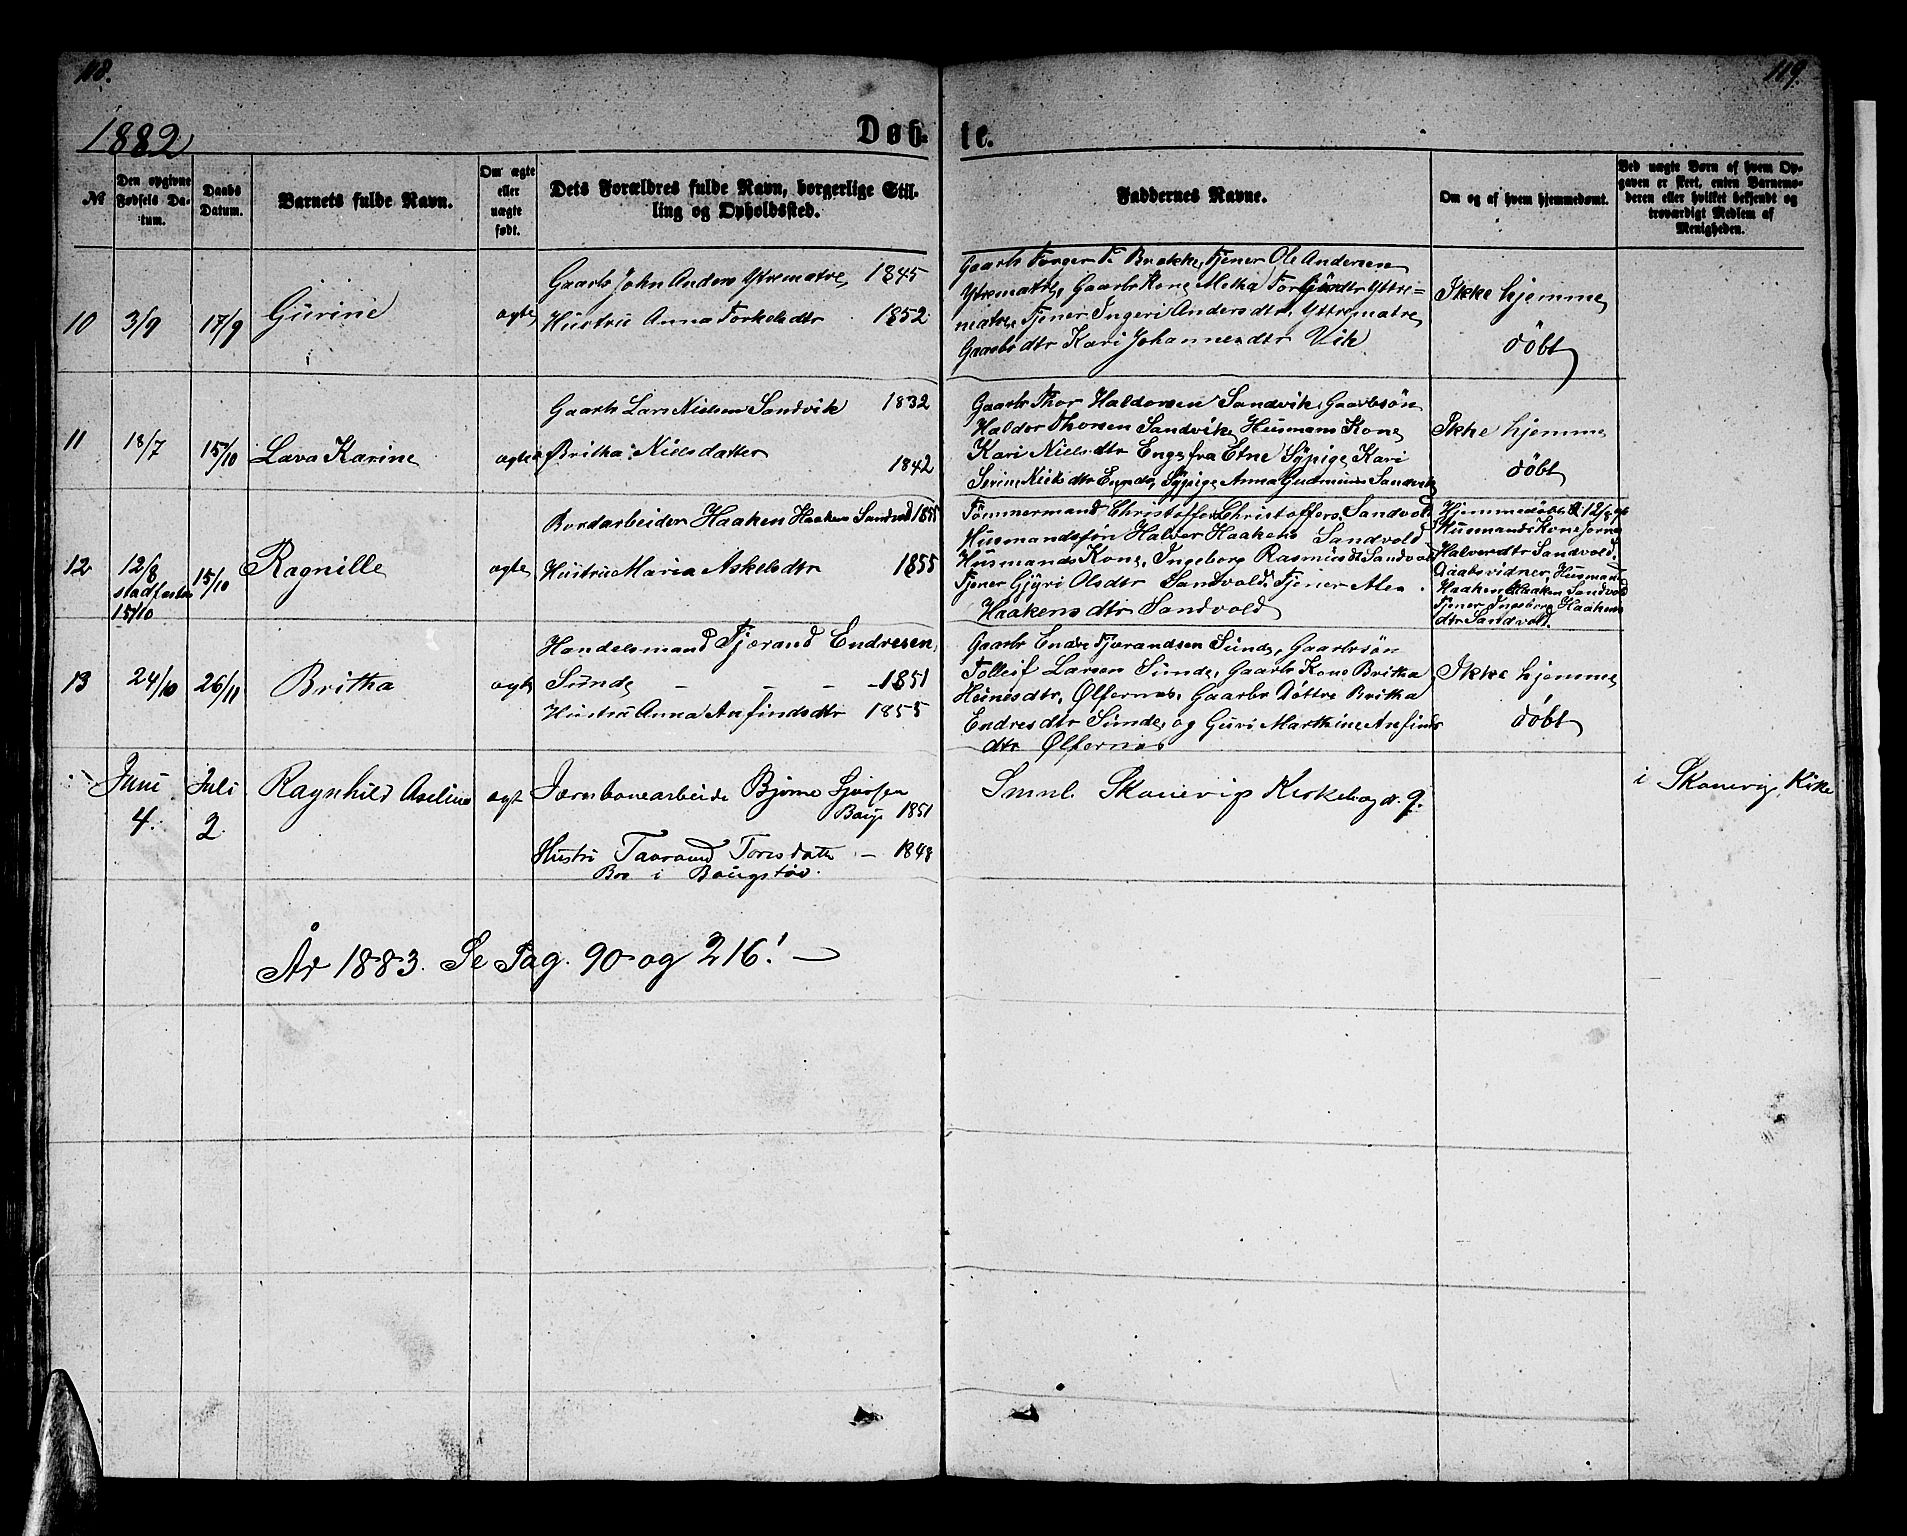 118.
119.
1882
Døb-
te.
№
Den opgivne Fødsels Datum.
Daabs Datum.
Barnets fulde Navn.
Om ægte eller uægte født.
Dets Forældres fulde Navn, borgerlige Stilling og Opholdssted.
Faddernes Navne.
Om og af hvem hjemmedømt.
Ved uægte Børn af hvem Opgaven er skeet, enten Barnemoderen eller hvilket bekjendt og troværdigt Medlem af Menigheden.
10 3/9 17/9 Gurine ægte
Gaarbr John Anders Ytrematre 1845
Hustru Anna Torkelsdtr 1852
Gaarbr Torger T. Brekke, Tjener Ole Andersen
Ytrematre, Gaarbr Kone Metha Torgersdtr Yttre=
matre, Tjener Ingeri Andersdtr, Yttrematre
Gaarbr dtr Kari Johannesdtr Vik
Ikke hjemme
døbt
11 18/7 15/10 Lava Karine ægte
Gaarb Lars Nielsen Sandvik 1832
Britha Nielsdatter
1842
Gaarbr Thor Haldorsen Sandvik, Gaarbsøn
Haldor Thorsen Sandvik, Husmans Kone
Kari Nielsdtr Enge fra Etne Sypige Kari
Serine Nielsdtr Sypige Anna Gudmunds Sandvik
Ikke hjemme
døbt
12 12/8 stadfæstes 15/10 15/10 Ragnille ægte
Bordarbeider Haaken Haakens Sandvold 1855
Hustru Maria Askelsdtr 1855
Tømmermand Christoffer Christoffers. Sandvold
Husmandsøn Halvor Haakens Sandvold
Husmands Kone, Ingeborg Rasmusdt Sandvold
Tjener Gjyri Olsdtr Sandvold. Tjener Alen
Haakensdtr Sandvold
Hjemmedøbt 12/8 af
Husmands Kone
Halversdtr Sandvold.
Daabsvidner, Husmand
Haaken Haaken Sandvold
Tjener Ingeborg Haakens
dtr Sandvold.
13 24/10 26/11 Britha ægte
Handelsmand Tjerand Endresen,
Sunde - - - 1851
Hustru Anna Anfindsdtr 1855
Gaarbr Endre Tjerandsen Sunde, Gaarbsøn
Tolleif Larsen Sunde, Gaarbr Kone Britha
Heinesdtr, Ølfernes, Gaarbr Døttre Britha
Endresdtr Sunde, og Guri Marthine Anfinds
dtr Ølfernes
Ikke hjemme
døbt
Juni 4. Juli 2. Ragnhild Aseline ægt
Jærnbanearbeide Bjørne Sjursen
Baug 1851
Hustru Torisdatt - 1848
Boe i Baugstøv.
Smnl. Skonevig Kirkebog d. 9.
i Skonevig Kirke
År 1883. Se Pag. 90 og 216! -